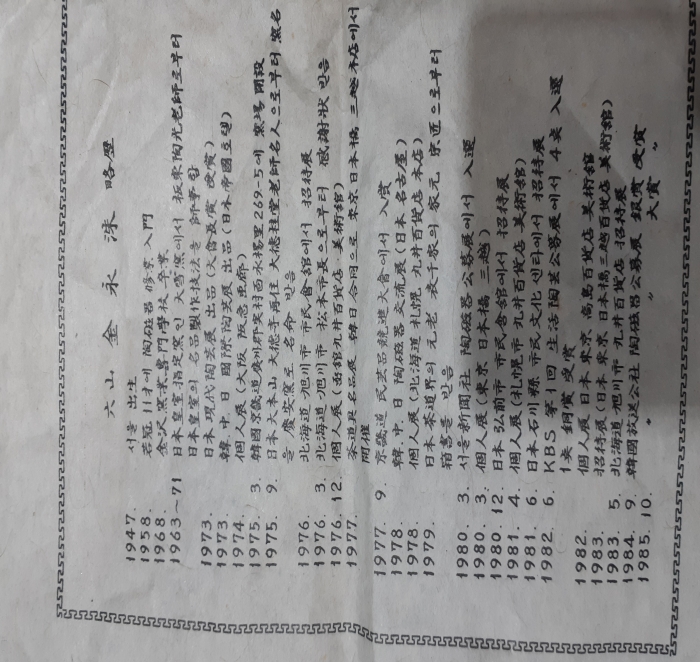 六山 金永洙 略歷
1947. 서울 出生
1958. 若冠 11才에 陶磁器 修業 入門
1968. 金沢窯業専門學校 卒業
1963~71 日本皇室指定窯인 大雪窯에서 板東陶光老師으로부터
日本皇室의 名品製作技法을 師事함
1973. 日本現代陶芸展 出品 (大會長賞 受賞)
1973. 韓 中 日 國際陶芸展 出品 (日本帝國호텔)
1974. 個人展 (大阪 阪急
1975. 3. 韓國京畿道廣州郡實村面水楊里269-5에 窯場 開設
1975. 9. 日本大本山 大德寺 再住 大德桂堂老師名人으로부터 窯名
을 慶安窯로 名命 받음
1976. 北海道 旭川市 市民會館에서 招待展
1976. 3. 北海道 旭川市 松本市長으로부터 感謝狀 받음
1976. 12. 個人展 (函館丸井百貨店 美術館)
1977. 茶道具名品展 韓日合同으로 東京日本橋 三越本店에서
開催
1977. 9. 京畿道 民芸品競進大會에서 入賞
1978. 韓 中 日 陶磁器交流展 (日本 名古屋)
1978. 個人展 (北海道 札幌 丸井百貨店 本店)
1979. 日本茶道界의 元老 表千家의 家元 宗匠으로부터
箱書를 받음
1980. 3. 서울新聞社 陶磁器公募展에서 入選
1980. 3. 個人展 (東京 日本橋 三越)
1980. 12. 日本弘前市 市民會館에서 招待展
1981. 4. 個人展 (札幌市 丸井百貨店 美術館)
1981. 6. 日本石川縣 市民文化센타에서 招待展
1982. 6. KBS 第1回 生活陶芸公募展에서 4点 入選
1点 銅賞 受賞
1982. 個人展 日本東京 高島百貨店 美術館
1983. 招待展 (日本東京 日本橋三越百貨店 美術館)
1983. 5. 北海道 旭川市 丸井百貨店 招待展
1984. 9. 韓國放送公社 陶磁器公募展 銀賞 受賞
1985. 10. 〃 〃 大賞 〃